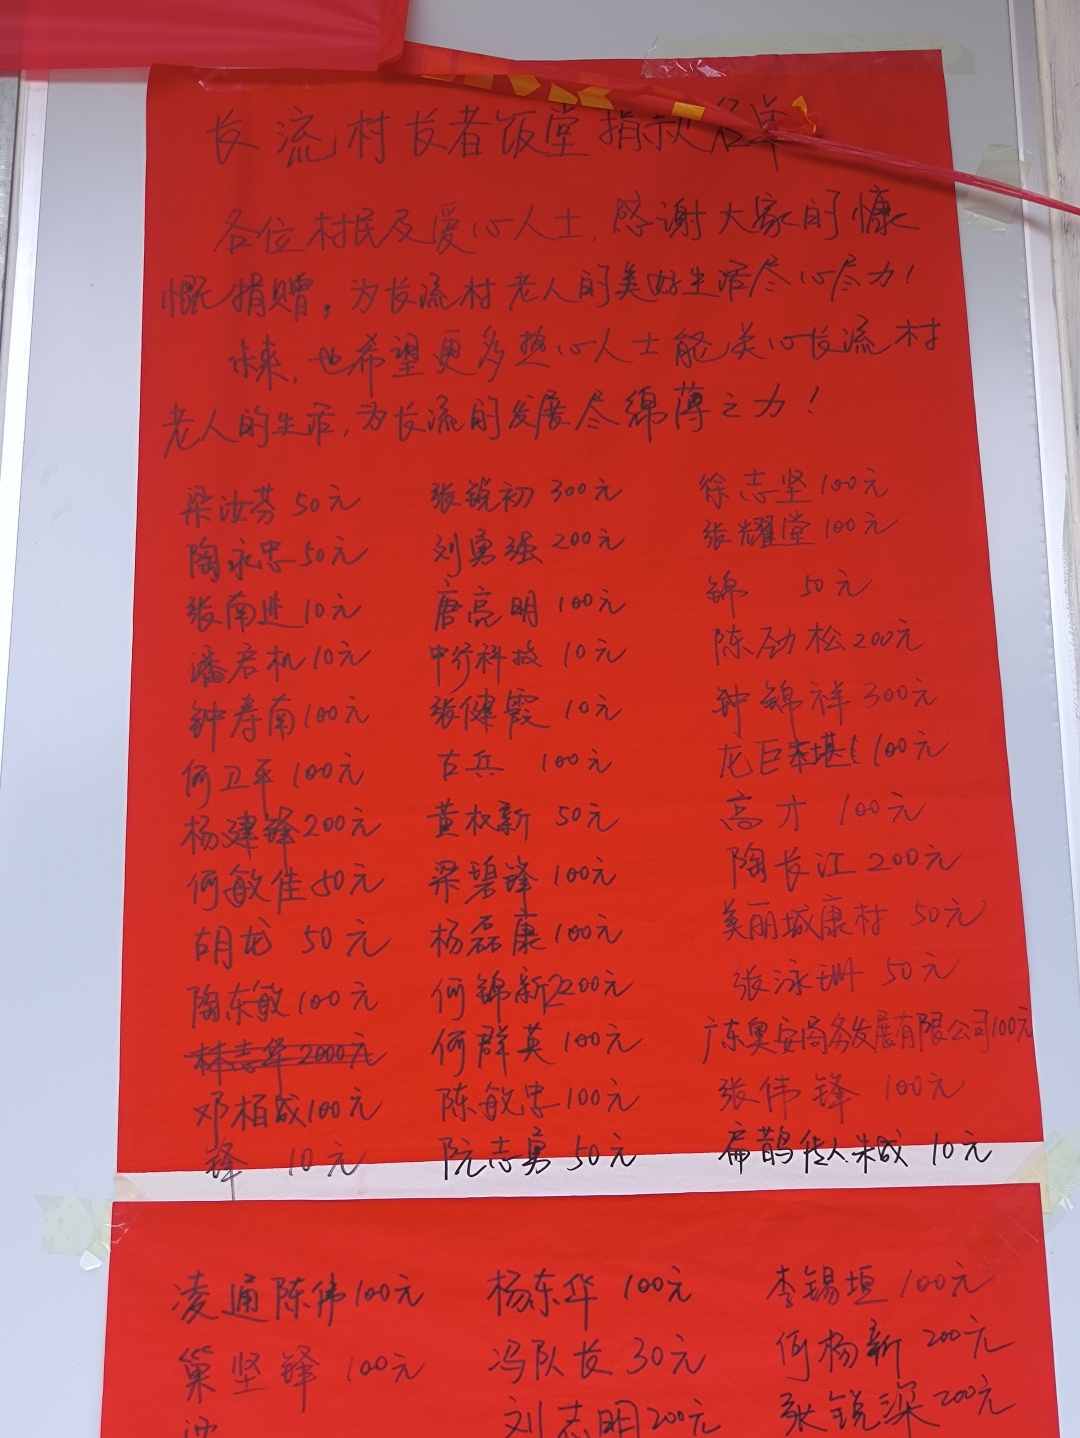 长流村长者饭堂捐款名单
各位村民及爱心人士,感谢大家的慷
慨捐赠,为长流村老人的美好生活尽心尽力!
未来,也希望更多热心人士能关心长流村
老人的生活,为长流的发展尽绵薄之力!
梁汝芬 50元 张锐初 300元 徐志坚 100元
陶永忠 50元 刘勇强 200元 张耀堂 100元
张南进 10元 唐亮明 100元 锦 50元
潘启机 10元 中行科技 10元 陈劲松 200元
钟寿南 100元 张健霞 10元 钟锦祥 300元
何卫平 100元 古兵 100元 龙巨 100元
杨建锋 200元 黄权新 50元 高才 100元
何敏佳 50元 梁碧锋 100元 陶长江 200元
胡龙 50元 杨磊康 100元 美丽城康村 50元
陶东敏 100元 何锦新 200元 张泳珊 50元
林志华 2000元 何群英 100元 广东奥安商务发展有限公司 100元
邓栢成 100元 陈敏忠 100元 张伟锋 100元
锋 10元 阮志勇 50元 扁鹊传人朱成 10元
凌通陈伟 100元 杨东华 100元 李锡垣 100元
巢坚锋 100元 冯队长 30元 何杨新 200元
刘志明 200元 张锐深 200元